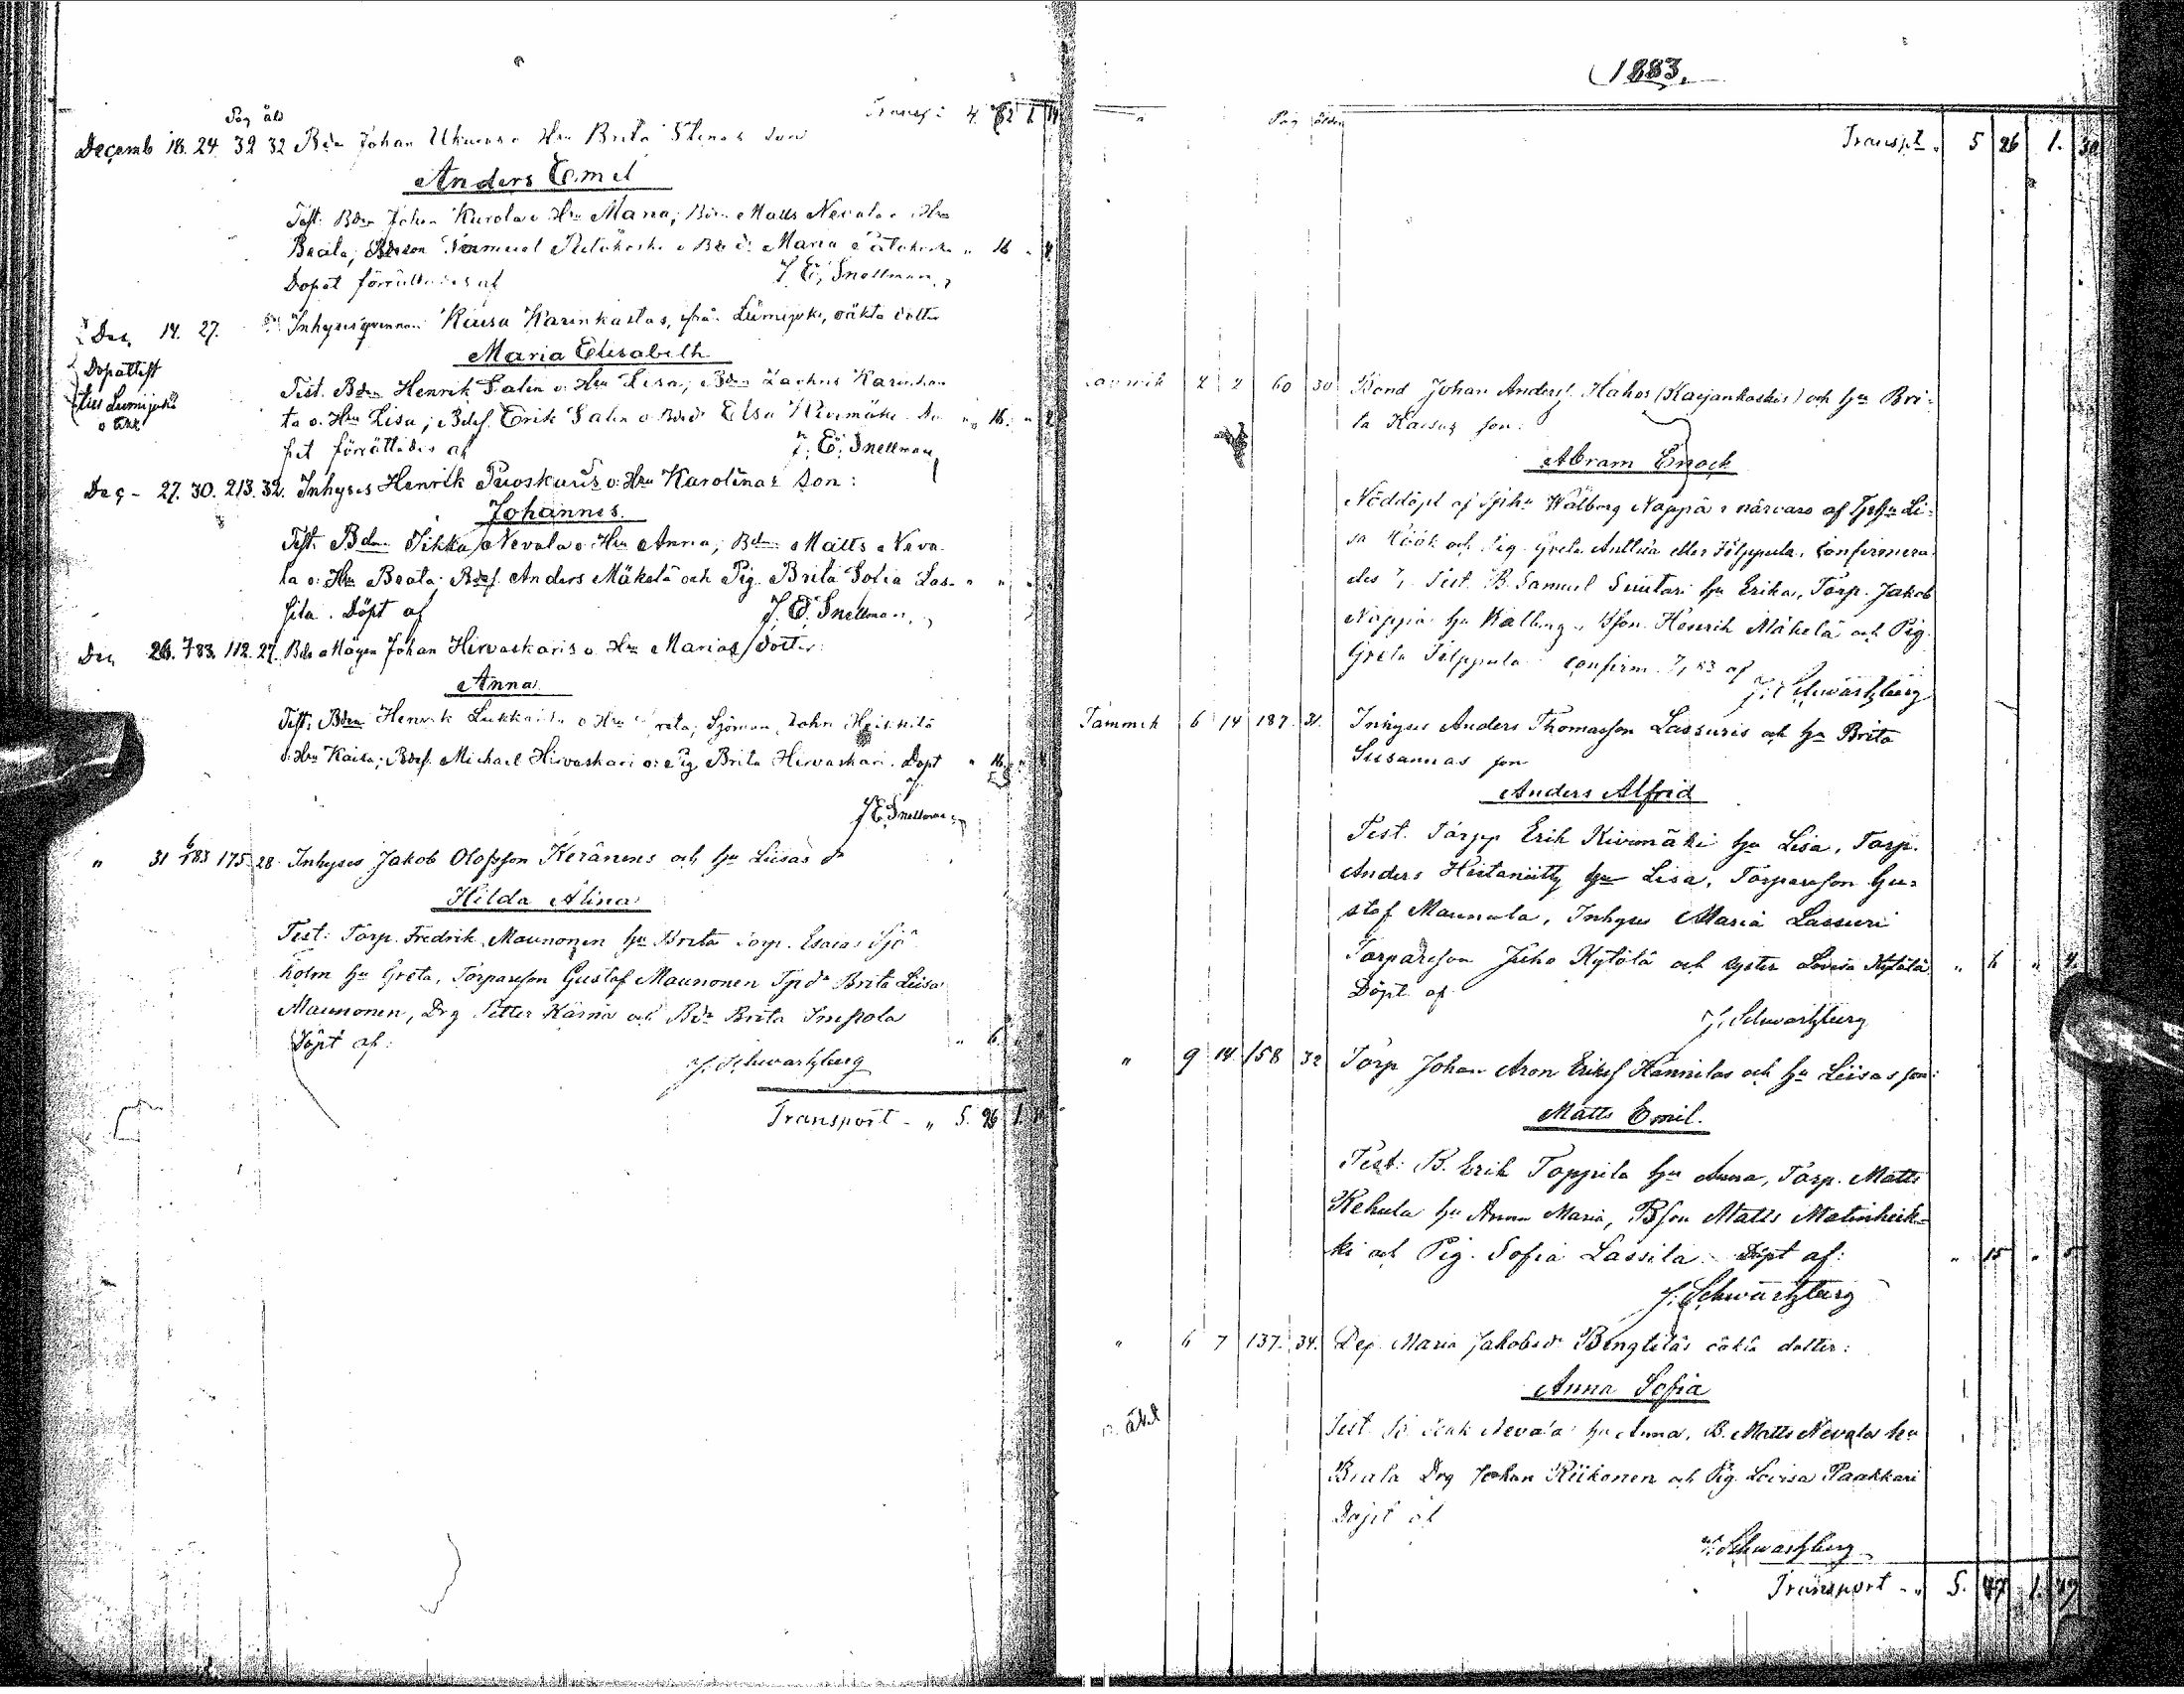 Pag åld
Transp: 4. 62 1 14
Decemb 18. 24. 32 32 Bdn Johan Ukuras o Hu Brita Stinas son
Anders Emil
Test. Bdn Johan Kurola o Hu Maria; Bdn Matts Nevala o Hu
Beata; Bdeson Samuel o Bdr Maria " 16 "
Dopet förrättades af J. E. Snellman
Dec. 14. 27. Inhyses qvinnan Kaisa Karinkastas, från Lumijoki, oäkta dotter
Maria Elisabeth
Dopattest
till Lumijoki
Test. Bdn Henrik Salin o. Hu Lisa; Bdn Zachris Karinkan
ta o. Hu Lisa; Bdesf. Erik Salin o Bdr Elsa Kivimäki. Do " 16. "
pet förrättades af J. E. Snellman
Dec - 27. 30. 213. 32. Inhyses Henrik Puoskaris o. Hu Karolinas son:
Johannes.
Test. Bdn Iikka Nevala o Hu Anna; Bdn Matts Neva
la o. Hu Beata; Bdesf. Anders Mäkelä och Pig. Brita Sofia Las- " "
sila. Döpt af J. E. Snellman
Dec 26. 7/83. 112. 27. Bde Mågen Johan Hirvaskaris o Hu Marias dotter:
Anna
Test: Bdn Henrik o Hu Greta; Sjöman John Heikkilä
o. Hu Kaisa; Bdesf. Michael Hirvaskari o: Pig Brita Hirvaskari. Döpt " 16.
af
J E Snellman
" 31 6/183 175 28 Inhyses Jakob Olofsson Keränens och hu Liisas dr
Hilda Alina
Test: Torp. Fredrik Maunonen hu Brita Torp. Esaias Sjö
holm hu Greta, Torpareson Gustaf Maunonen Tpdr Brita Liisa
Maunonen, Drg Petter Kärnä och Bdr Brita Impola
Döpt af: " 6.
J. Schwartzberg
Transport - " 5. 26 1.
1883.
Pag åldr
Transpt. 5 26 1. 30
2 2 60 30 Bond Johan Anders Hahos (Karjankoskis) och hu Bri-
ta Kaisas son:
Abram Enock
Nöddöpt af Tphu Walborg Nappä i närvaro af Tphu Li-
sa Höök och Pig. Greta Anttila eller Filppula. Confirmera
des 7/1 Test. B. Samuel Suutari hu Erika, Torp. Jakob
Nappä hu Walborg, Bson Henrik Mäkelä och Pig.
Greta Filppula confirm. 7/1 83 af
J. Schwartzberg
Tammik 6 14 187 31. Inhyses Anders Thomasson Lassuris och hu Brita
Susannas son
Anders Alfrid
Test. Torpp Erik Kivimäki hu Lisa, Torp.
Anders Hietaniitty hu Lisa, Torpareson Gu-
staf Maunula, Inhyses Maria Lassuri
Torpareson Juho Kytölä och syster Lovisa Kytölä " 6 " 4.
Döpt af:
J. Schwartzberg
" 9 14 158 32 Torp Johan Aron Eriksf Hannilas och hu Liisas son:
Matts Emil.
Test: B. Erik Toppila hu Anna, Torp. Matts
Kehula hu Anna Maria, Bson Matts Matinheik-
ki och Pig. Sofia Lassila. Döpt af: " 15 " 5
J. Schwartzberg
" 6 7 137. 34. Dej. Maria Jakobsdr Bengtiläs oäkta dotter:
Anna Sofia
o. äkt
Test. B. Isak Nevala hu Anna, B. Matts Nevala hu
Beata Drg Johan Riikonen och Pig. Lovisa Paakkari
Döpt af
J. Schwartzberg
Transport - " 5. 47 1. 49